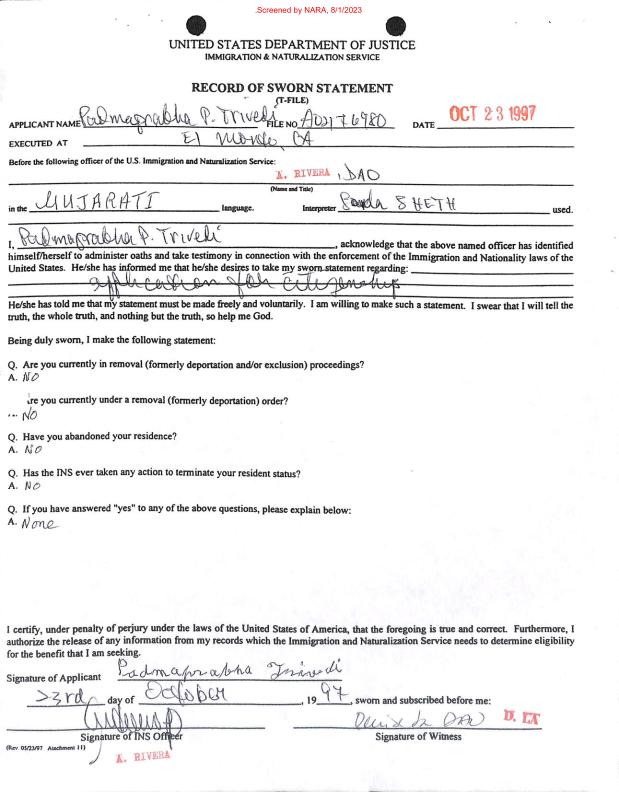 Screened by NARA, 8/1/2023
UNITED STATES DEPARTMENT OF JUSTICE
IMMIGRATION & NATURALIZATION SERVICE
RECORD OF SWORN STATEMENT
(T-FILE)
APPLICANT NAME Padmaprabha P. Trivedi FILE NO. DATE OCT 23 1997
EXECUTED AT El Monte, CA
Before the following officer of the U.S. Immigration and Naturalization Service:
A. RIVERA, DAO
(Name and Title)
in the GUJARATI language. Interpreter SHETH used.
I, Padmaprabha P. Trivedi, acknowledge that the above named officer has identified
himself/herself to administer oaths and take testimony in connection with the enforcement of the Immigration and Nationality laws of the
United States. He/she has informed me that he/she desires to take my sworn statement regarding:
application for citizenship
He/she has told me that my statement must be made freely and voluntarily. I am willing to make such a statement. I swear that I will tell the
truth, the whole truth, and nothing but the truth, so help me God.
Being duly sworn, I make the following statement:
Q. Are you currently in removal (formerly deportation and/or exclusion) proceedings?
A. NO
re you currently under a removal (formerly deportation) order?
NO
Q. Have you abandoned your residence?
A. NO
Q. Has the INS ever taken any action to terminate your resident status?
A. NO
Q. If you have answered "yes" to any of the above questions, please explain below:
A. None
I certify, under penalty of perjury under the laws of the United States of America, that the foregoing is true and correct. Furthermore, I
authorize the release of any information from my records which the Immigration and Naturalization Service needs to determine eligibility
for the benefit that I am seeking.
Signature of Applicant Padmaprabha Trivedi
23rd day of October, 1997, sworn and subscribed before me:
D. LA
Signature of INS Officer Signature of Witness
(Rev. 05/23/97 Attachment 11)
A. RIVERA